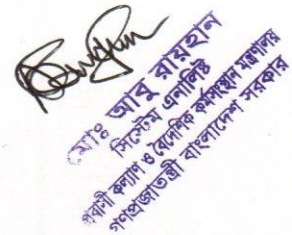 মোঃ আবু রায়হান
সিস্টেম এনালিষ্ট
প্রবাসী কল্যাণ ও বৈদেশিক কর্মসংস্থান মন্ত্রণালয়
গণপ্রজাতন্ত্রী বাংলাদেশ সরকার